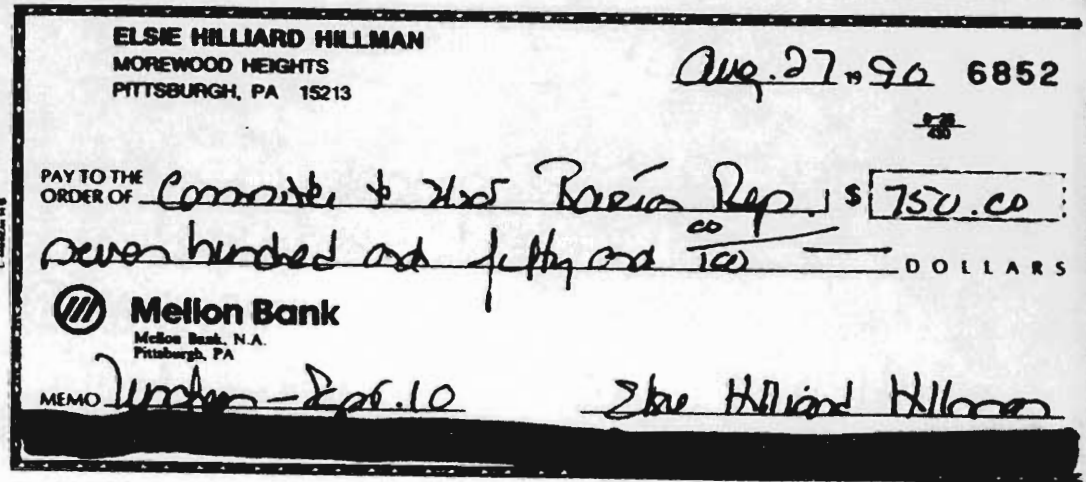 ELSIE HILLIARD HILLMAN
MOREWOOD HEIGHTS
PITTSBURGH, PA 15213
Aug. 27 19 90 6852
PAY TO THE
ORDER OF Committee to Rep. $ 750.00
seven hundred and fifty and 00/100 DOLLARS
Mellon Bank
Mellon Bank, N.A.
Pittsburgh, PA
MEMO Luncheon - Sept. 10 Elsie Hilliard Hillman